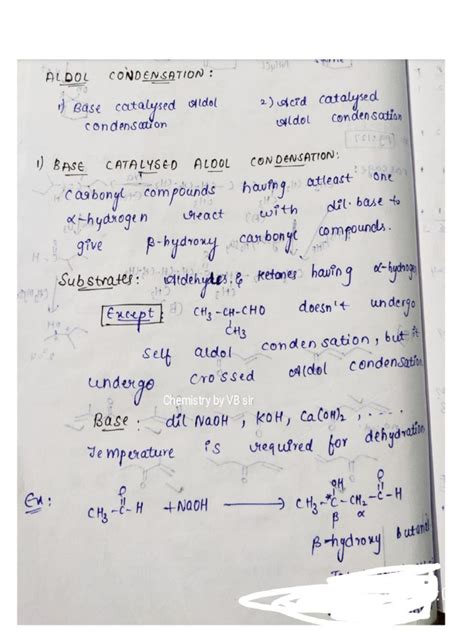 ALDOL CONDENSATION:
1) Base catalysed Aldol condensation
2) Acid catalysed Aldol condensation
1) BASE CATALYSED ALDOL CONDENSATION:
Carbonyl compounds having atleast one
α-hydrogen react with dil. base to
give β-hydroxy carbonyl compounds.
Substrates: Aldehydes & Ketones having α-hydrogen
Except: CH3-CH-CHO doesn't undergo
CH3
self aldol condensation, but it
undergo crossed aldol condensation
Chemistry by VB sir
Base: dil NaOH, KOH, Ca(OH)2, ....
Temperature is required for dehydration
O OH O
Ex: CH3-C-H + NaOH → CH3-C-CH2-C-H
β α
β-hydroxy